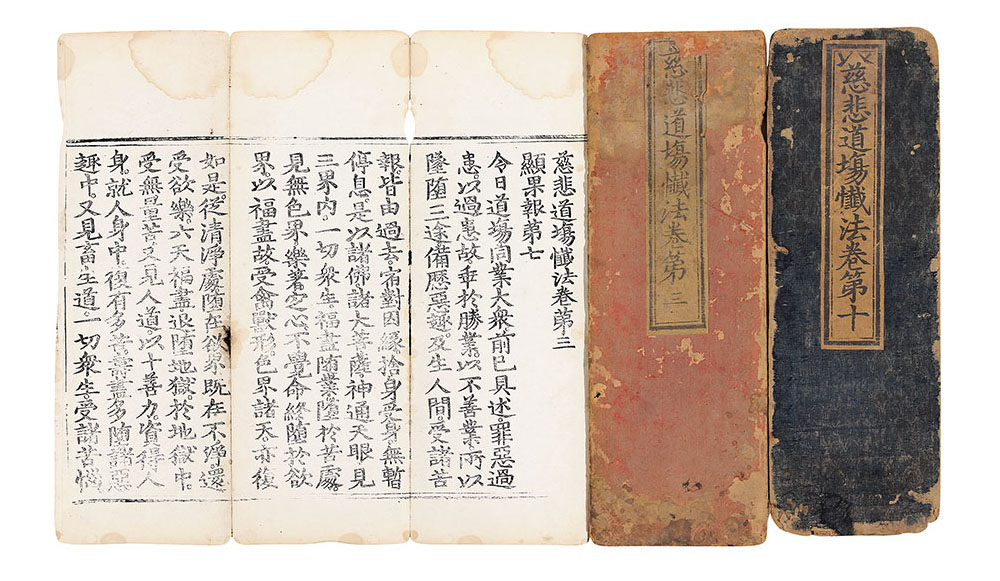 慈悲道場懺法卷第十
慈悲道場懺法卷第三
慈悲道場懺法卷第三
顯果報第七
今日道場同業大衆。前已具述。罪惡過
患。以過患故。乖於勝業。以不善業所以
墜墮三途。備歷惡趣。及生人間。受諸苦
報。皆由過去。宿對因緣。捨身受身。無暫
停息。是以諸佛諸大菩薩。神通天眼。見
三界內。一切衆生。福盡隨業。墮於苦處。
見無色界。樂著定心。不覺命終。墮於欲
界。以福盡故。受禽獸形。色界諸天。亦復
如是。從清淨處。墮在欲界。既在不淨。還
受欲樂。六天福盡。退墮地獄。於地獄中。
受無量苦。又見人道。以十善力。資得人
身。就人身中。復有多苦。壽盡多墮。諸惡
趣中。又見畜生道。一切衆生。受諸苦惱